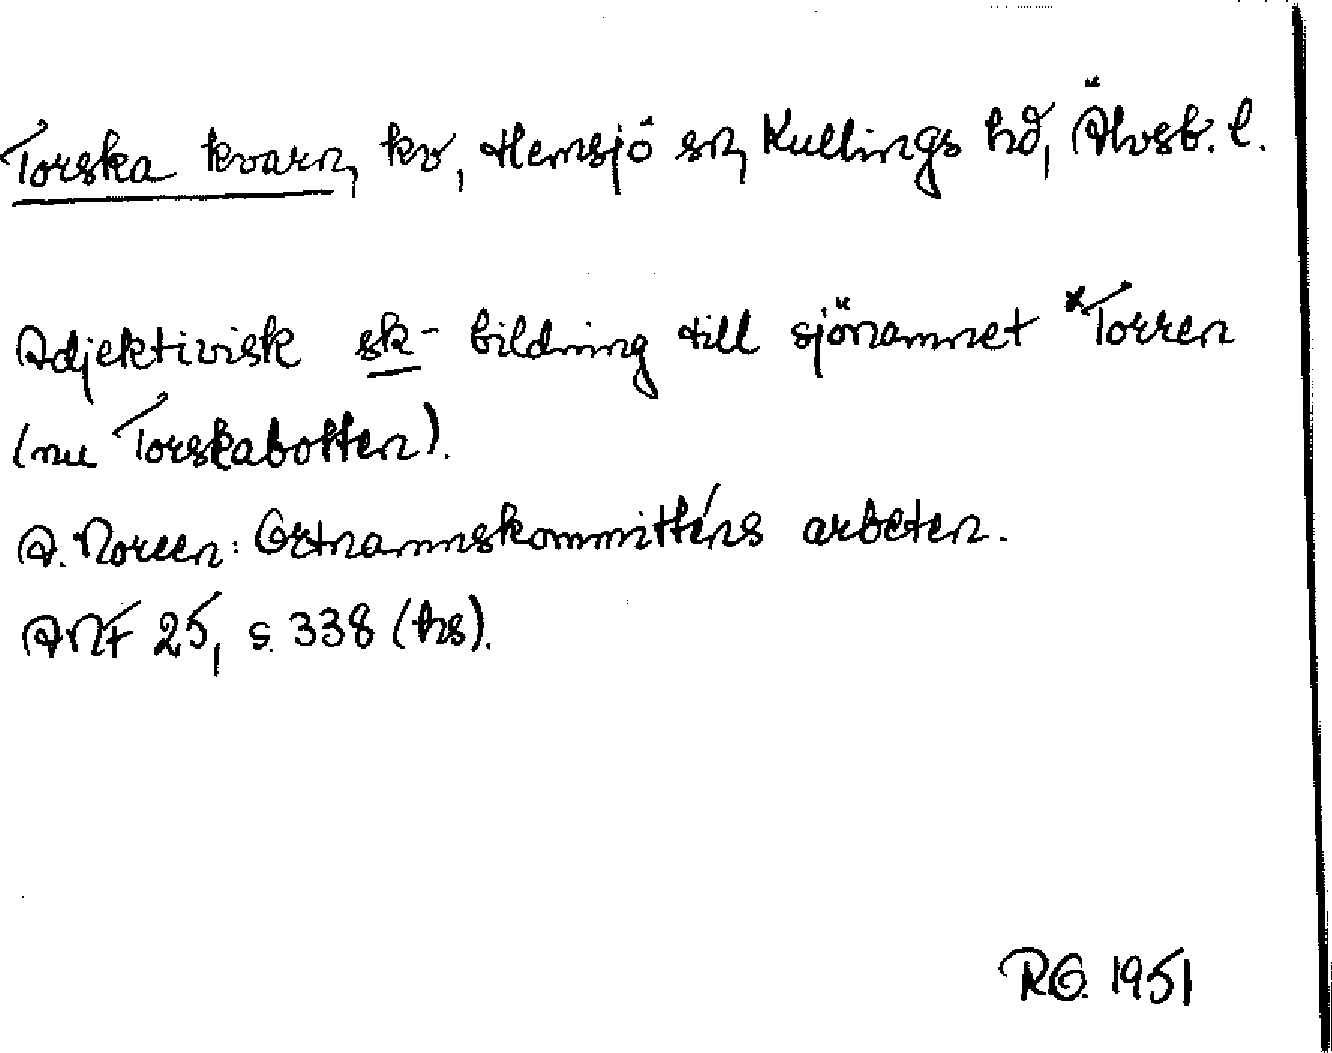 Torska kvarn, kv, Hemsjö sn, Kullings hd, Älvsb. l.
Adjektivisk sk- bildning till sjönamnet *Torren
(nu Torskabotten).
A. Noreen: Ortnamnskommitténs arbeten.
ANF 25, s. 338 (hs).
RO. 1951